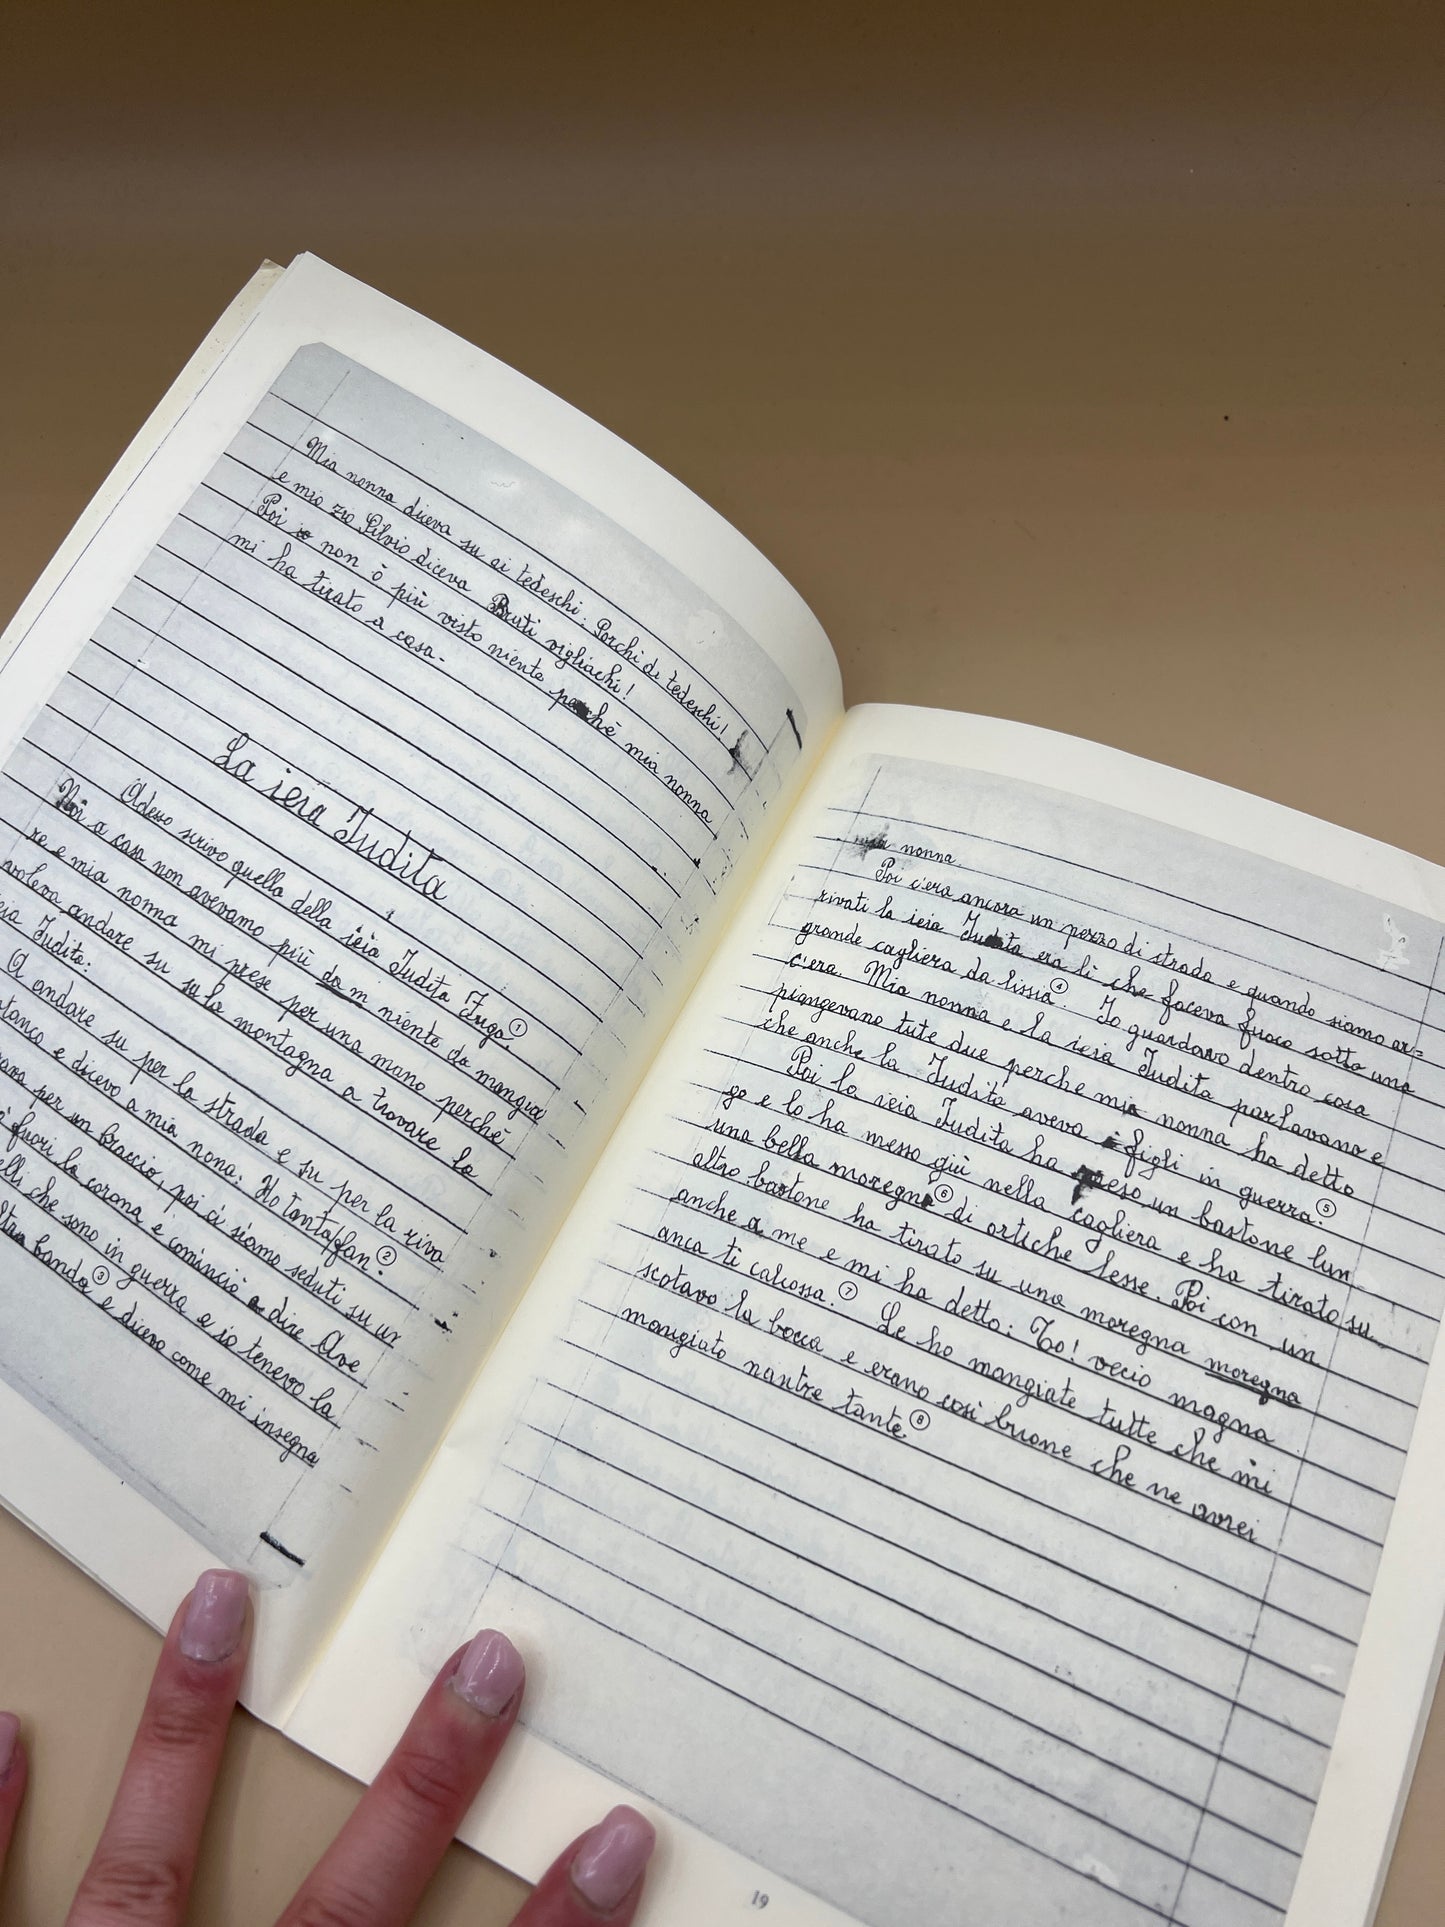 Mia nonna diceva su ai tedeschi: Porchi di tedeschi!
e mio zio Silvio diceva Bruti vigliachi!
Poi io non ò più visto niente perchè mia nonna
mi ha tirato a casa.
La ieia Iudita
Adesso scrivo quella della ieia Iudita Zuga. ①
Noi a casa non avevamo più da m niente da mangia
re e mia nonna mi prese per una mano perchè
voleva andare su su la montagna a trovare la
ieia Iudita:
A andare su per la strada e su per la riva
stanco e dicevo a mia nona: Ho tanta fan. ②
per un braccio, poi ci siamo seduti su un
fuori la corona e cominciò a dire Ave
che sono in guerra e io tenevo la
banda ③ e dicevo come mi insegna
mia nonna
Poi c'era ancora un pezzo di strada e quando siamo ar=
rivati la ieia Iudita era lì che faceva fuoco sotto una
grande cagliera da lissia ④. Io guardavo dentro cosa
c'era. Mia nonna e la ieia Iudita parlavano e
piangevano tute due perche mia nonna ha detto
che anche la Iudita aveva i figli in guerra. ⑤
Poi la ieia Iudita ha preso un bastone lun-
go e lo ha messo giù nella cagliera e ha tirato su
una bella moregna ⑥ di ortiche lesse. Poi con un
altro bastone ha tirato su una moregna moregna
anche a me e mi ha detto: To! vecio magna
anca ti calcossa. ⑦ Le ho mangiate tutte che mi
scotavo la bocca e erano così buone che ne avrei
mangiato nantre tante. ⑧
19